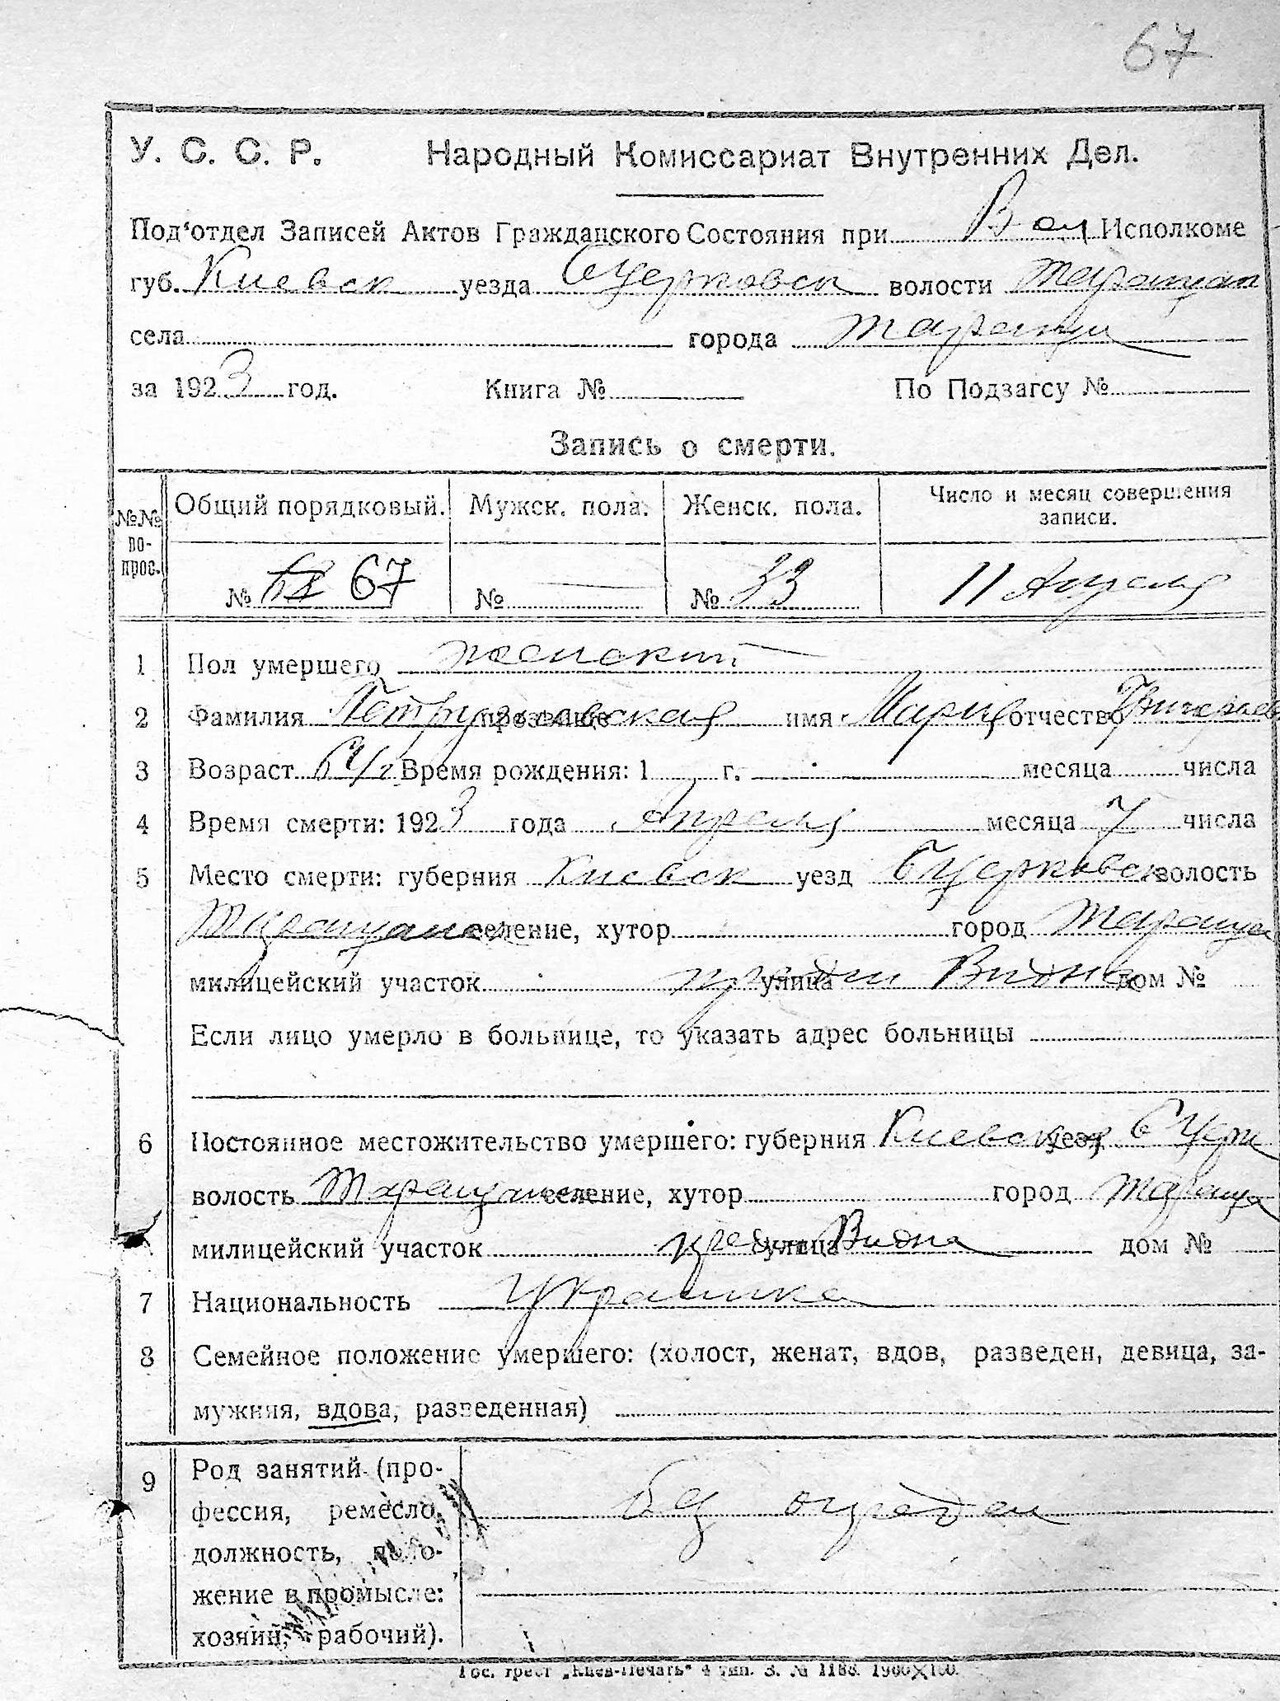 67
У. С. С. Р. Народный Комиссариат Внутренних Дел.
Под'отдел Записей Актов Гражданского Состояния при Вол Исполкоме
губ. Киевск уезда Бцерковск волости Таращан
села города Таращи
за 1923 год. Книга № По Подзагсу №
Запись о смерти.
№№ по-прос. Общий порядковый. Мужск. пола. Женск. пола. Число и месяц совершения записи.
№ 67 № — № 33 11 Апреля
1 Пол умершего женский
2 Фамилия прозвище имя Мария отчество
3 Возраст Время рождения: 1 г. месяца числа
4 Время смерти: 1923 года Апреля месяца 7 числа
5 Место смерти: губерния Киевск уезд Бцерковск волость
Таращанск селение, хутор город Тараща
милицейский участок улица дом №
Если лицо умерло в больнице, то указать адрес больницы
6 Постоянное местожительство умершего: губерния Киевская уезд БЦерк
волость селение, хутор город Тараща
милицейский участок улица дом №
7 Национальность Украинка
8 Семейное положение умершего: (холост, женат, вдов, разведен, девица, за-
мужняя, вдова, разведенная)
9 Род занятий (про-
фессия, ремесло,
должность, поло-
жение в промысле:
хозяин, рабочий).
Гос. трест „Киев-Печать" 4 тип. З. № 1188.